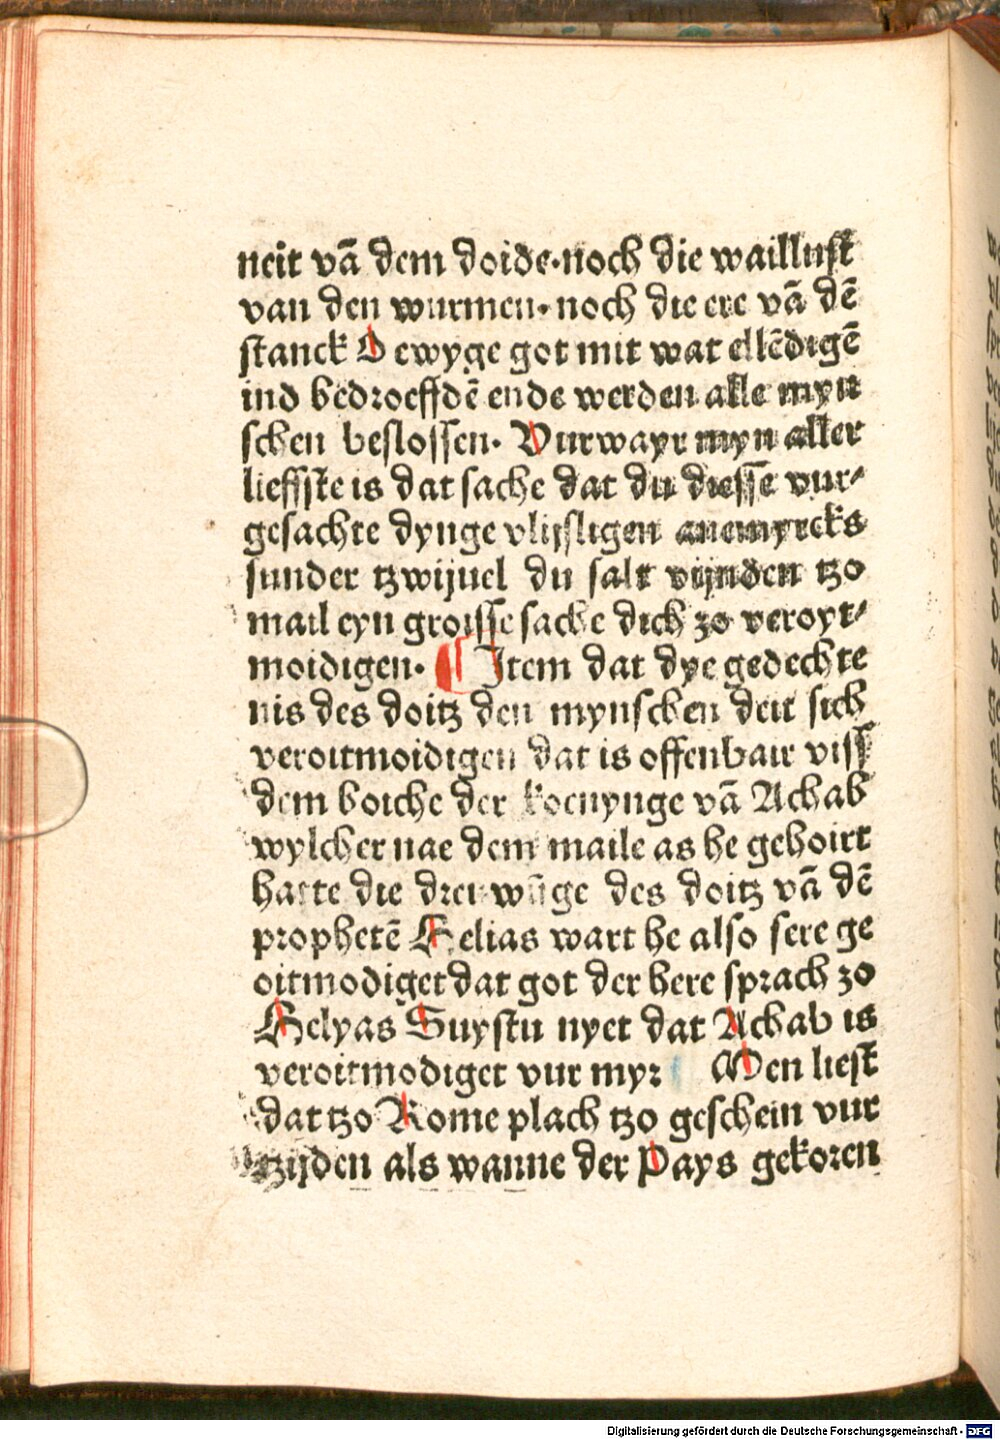 neit vā dem doide·noch die waillust
van den wurmen·noch die ere vā dē
stanck O ewyge got mit wat ellēdigē
ind bedroeffdē ende werden alle myn
schen beslossen· Vurwayr myn aller
lieffste is dat sache dat du diesse vur⸗
gesachte dynge vlijsligen anemyrcks
sunder tzwijuel du salt vijnden tzo
mail eyn groisse sache dich zo veroyt⸗
moidigen· ¶ Item dat dye gedechte
nis des doitz den mynschen deit sich
veroitmoidigen dat is offenbair viss
dem boiche der koenynge vā Achab
wylcher nae dem maile as he gehoirt
hatte die dreiwūge des doitz vā dē
prophetē Helias wart he also sere ge
oitmodiget dat got der here sprach zo
Helyas Suystu nyet dat Achab is
veroitmodiget vur myr Men liest
dat tzo Rome plach tzo geschein vur
tzijden als wanne der Pays gekoren
Digitalisierung gefördert durch die Deutsche Forschungsgemeinschaft - DFG